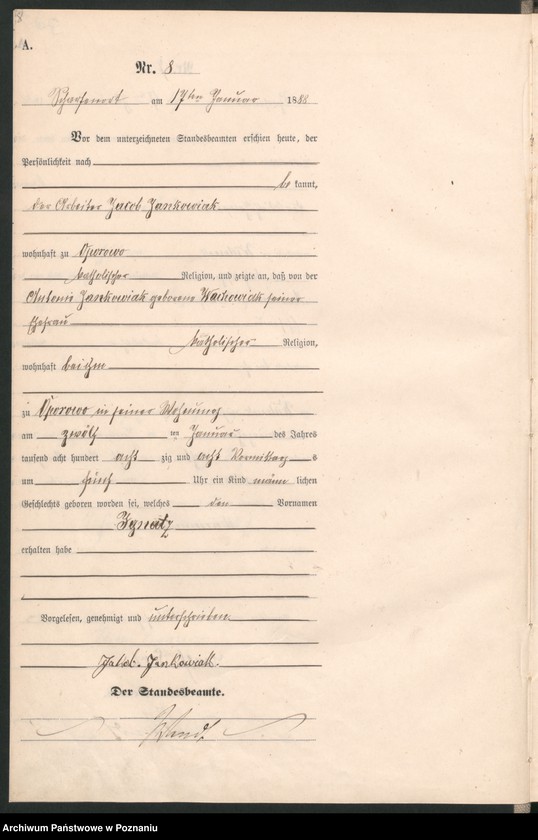 8
A.
Nr. 8
Scharfenort am 17ten Januar 1888
Vor dem unterzeichneten Standesbeamten erschien heute, der
Persönlichkeit nach
be kannt,
der Arbeiter Jacob Jankowiak
wohnhaft zu Oporowo
katholischer Religion, und zeigte an, daß von der
Antonie Jankowiak geborene Wachowiak seiner
Ehefrau
katholischer Religion,
wohnhaft bei ihm
zu Oporowo in seiner Wohnung
am zwölf ten Januar des Jahres
tausend acht hundert acht zig und acht Vormittag s
um fünf Uhr ein Kind männ lichen
Geschlechts geboren worden sei, welches den Vornamen
Ignatz
erhalten habe
Vorgelesen, genehmigt und unterschrieben
Jankowiak.
Der Standesbeamte.
Archiwum Państwowe w Poznaniu